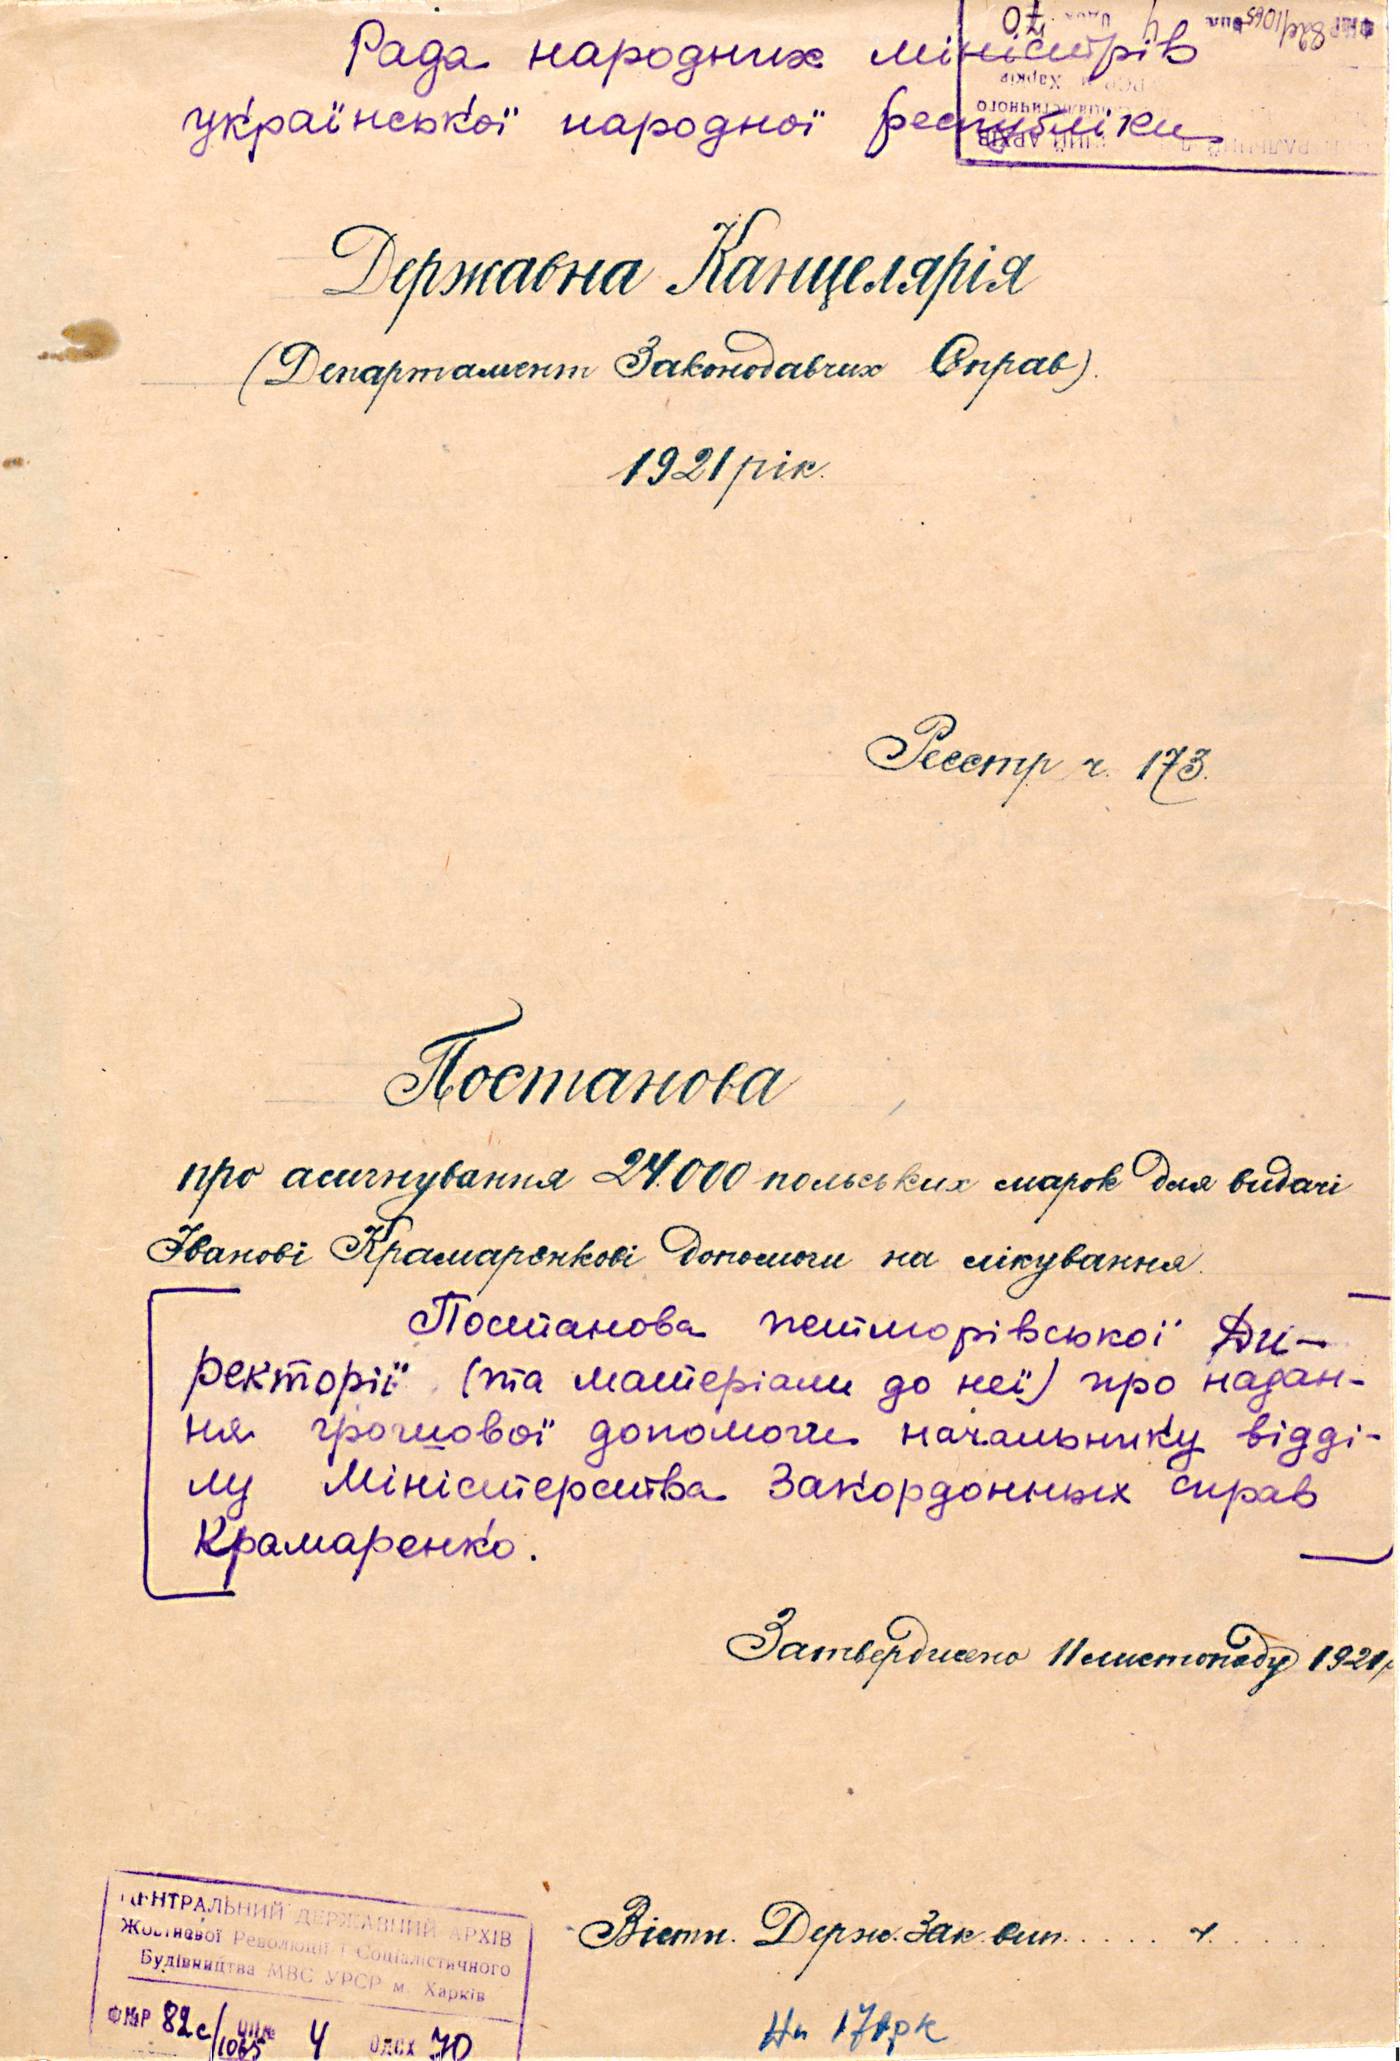 Рада народних міністрів
української народної республіки
Державна Канцелярія
(Департамент Законодавчих Справ).
1921 рік.
Реєстр ч. 173.
Постанова
про асигнування 24.000 польських марок для видачі
Іванові Крамаренкові допомоги на лікування.
Постанова петлюрівської Ди-
ректорії (та матеріали до неї) про надан-
ня грошової допомоги начальнику відді-
лу Міністерства Закордонных справ
Крамаренко.
Затверджено 11 листопаду 1921 р.
Вістн. Держ. Зак. вип. . . . . ч. . . . . .
ЦЕНТРАЛЬНИЙ ДЕРЖАВНИЙ АРХІВ
Жовтневої Революції і Соціалістичного
Будівництва МВС УРСР м. Харків
Ф№Р 82с/1065 оп№ 4 од.сх 70